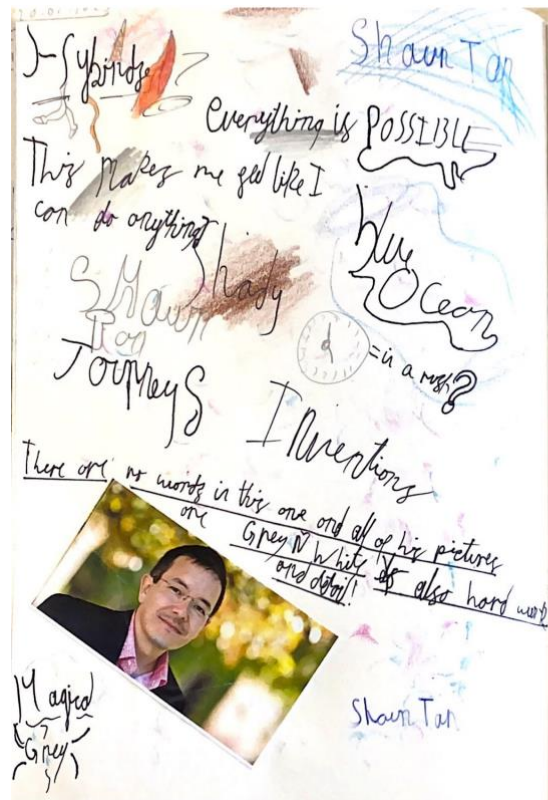 Hybrids?
Shaun Tan
everything is POSSIBLE
This makes me feel like I
can do anything
Shady
blue
Ocean
Shaun
Tan
= in a rush?
Journeys
Inventions
There are no words in this one and all of his pictures
are Grey N White & also hard work
and detail!
Magical
Grey
Shaun Tan